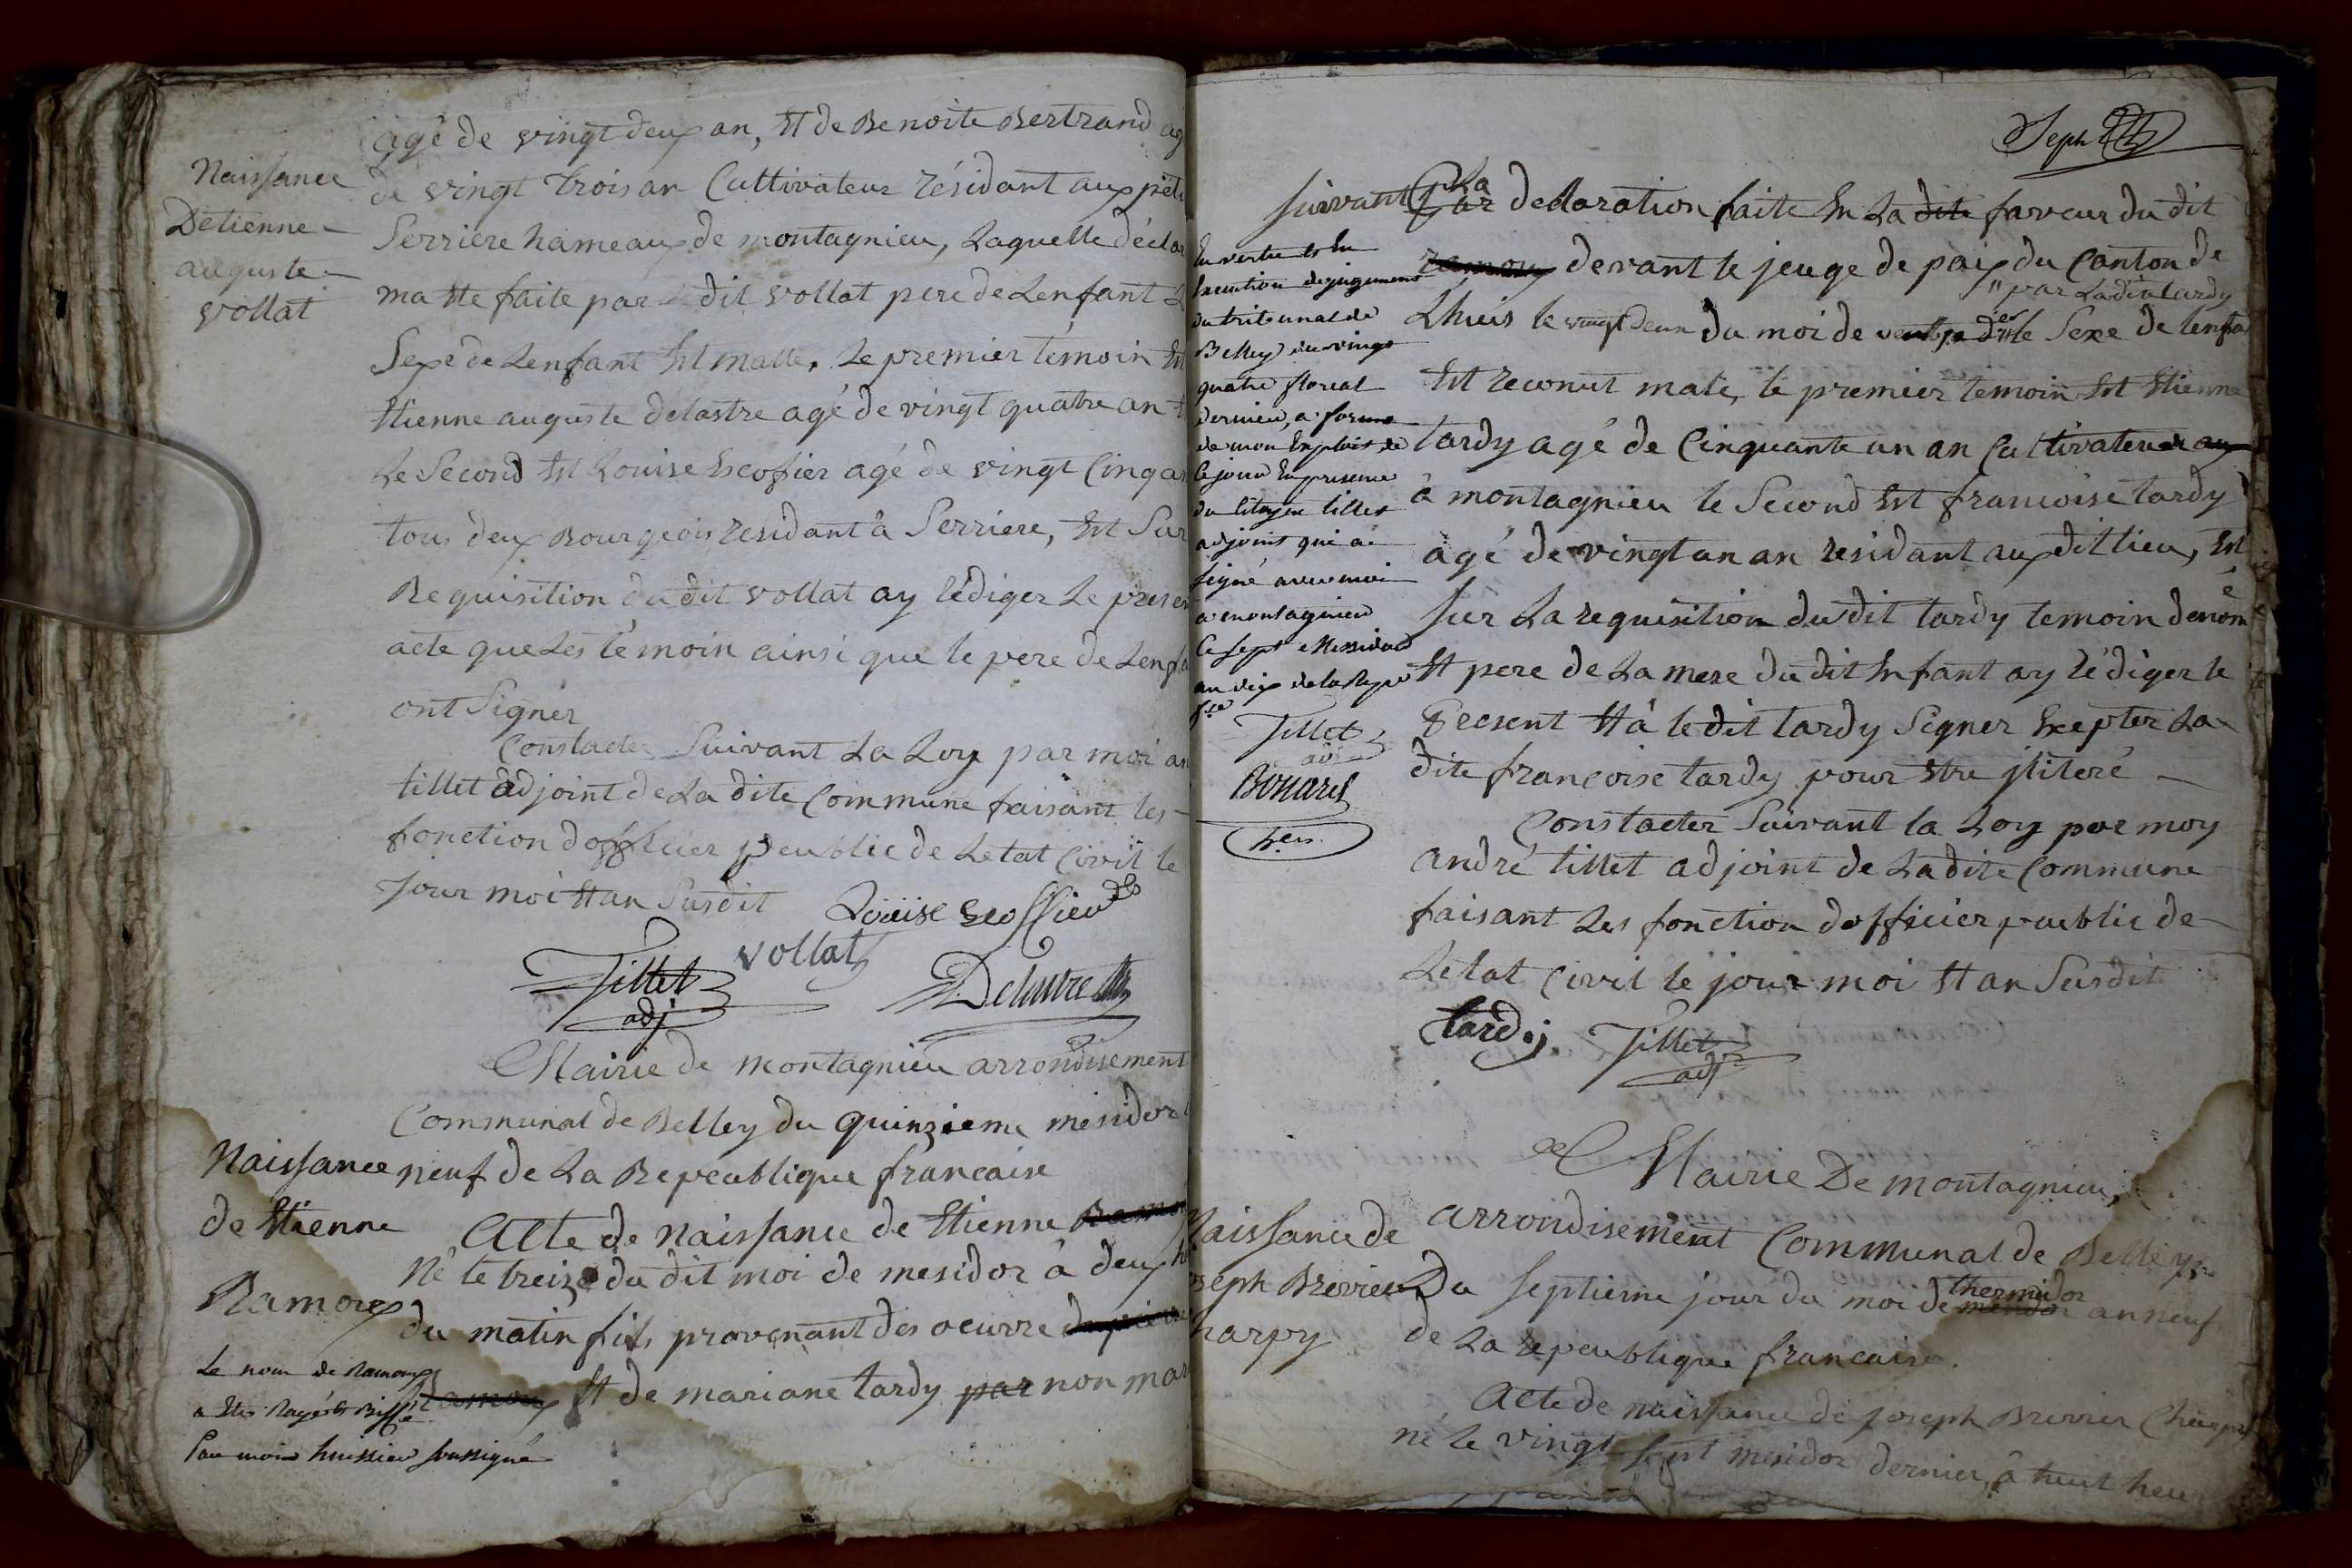 agé de vingt deux an, Et de Benoite Bertrand ag
de vingt trois an Cultivateur résidant aux peti
Serriere hameaux de montagnieu, Laquelle déclar
ma Ete faite par Le dit vollat pere de Lenfant
Sexe de Lenfant Est malle. Le premier témoin Est
Etienne auguste delastre agé de vingt quatre an
Le Second Est Louise Escofier agé de vingt Cinq an
tous deux Bourgeois résidant à Serriere, Est Sur
Requisition du dit vollat ay rédiger Le presen
acte que Les témoin ainsi que le pere de Lenfa
ont Signer
Constacter Suivant La Loy par moi an
tillet adjoint de La dite Commune faisant les
fonction dofficier peublic de Letat Civil le
Jour moi Et an Susdit
Naissance
Detienne
auguste
vollat
Louise Escoffier
vollat
Tillet
adj
Delastre
Mairie de montagnieu arrondisement
Communal de Belley du quinzieme mesidor
neuf de La Repeublique francaise
Acte de Naissance de Etienne Ramo
Né le treize du dit moi de mesidor à deux h
du matin fils provenant des oeuvre de pierre
Ramoux Et de mariane tardy par non mar
Naissance
de Etienne
Ramoux
Le nom de Ramoux
a Eté Rayé et Biffé
Par moi huissier soussigné
Joseph
suivant La
Par declaration faite En La dite faveur du dit
ramoux devant le jeuge de paix du Canton de
" par Ladite tardy
Lhuis le vingt deux du moi de ventose der le Sexe de lenfa
Est reconut male, le premier temoin Est Etienne
tardy agé de Cinquante un an Cultivateur au
à montagnieu le Second Est francoise tardy
agé de vingt un an residant aux dit lieu, Est
Sur La requisition dudit tardy temoin denomé
Et pere de La mere du dit Enfant ay rédiger le
Present Et à le dit tardy Signer Excepter La
dite francoise tardy pour Etre jliteré
Constacter Suivant la Loy par moy
andré tillet adjoint de Ladite Commune
faisant Les fonction dofficier peublic de
Letat Civil le jour moi Et an Susdit
tardy
Tillet
adj
En vertu et En
Execution de jugement
du tribunal de
Belley du vingt
quatre floreal
dernier, a forme
de mon Exploit de
Ce jour En presence
du Citoyen tillet
adjoint qui a
signé avec moi
a montagnieu
Ce sept Messidor
an dix de la Repub
fse
Tillet
adj
Bonard
her
Mairie De montagnieu,
arrondisement Communal de Belley
Du Septieme jour du moi de mesidor thermidor an neuf
de La repeublique francaise.
Acte de naissance de joseph Brevier
né Le vingt Sept mesidor dernier, à huit heur
Naissance de
oseph Brevieu
harpy